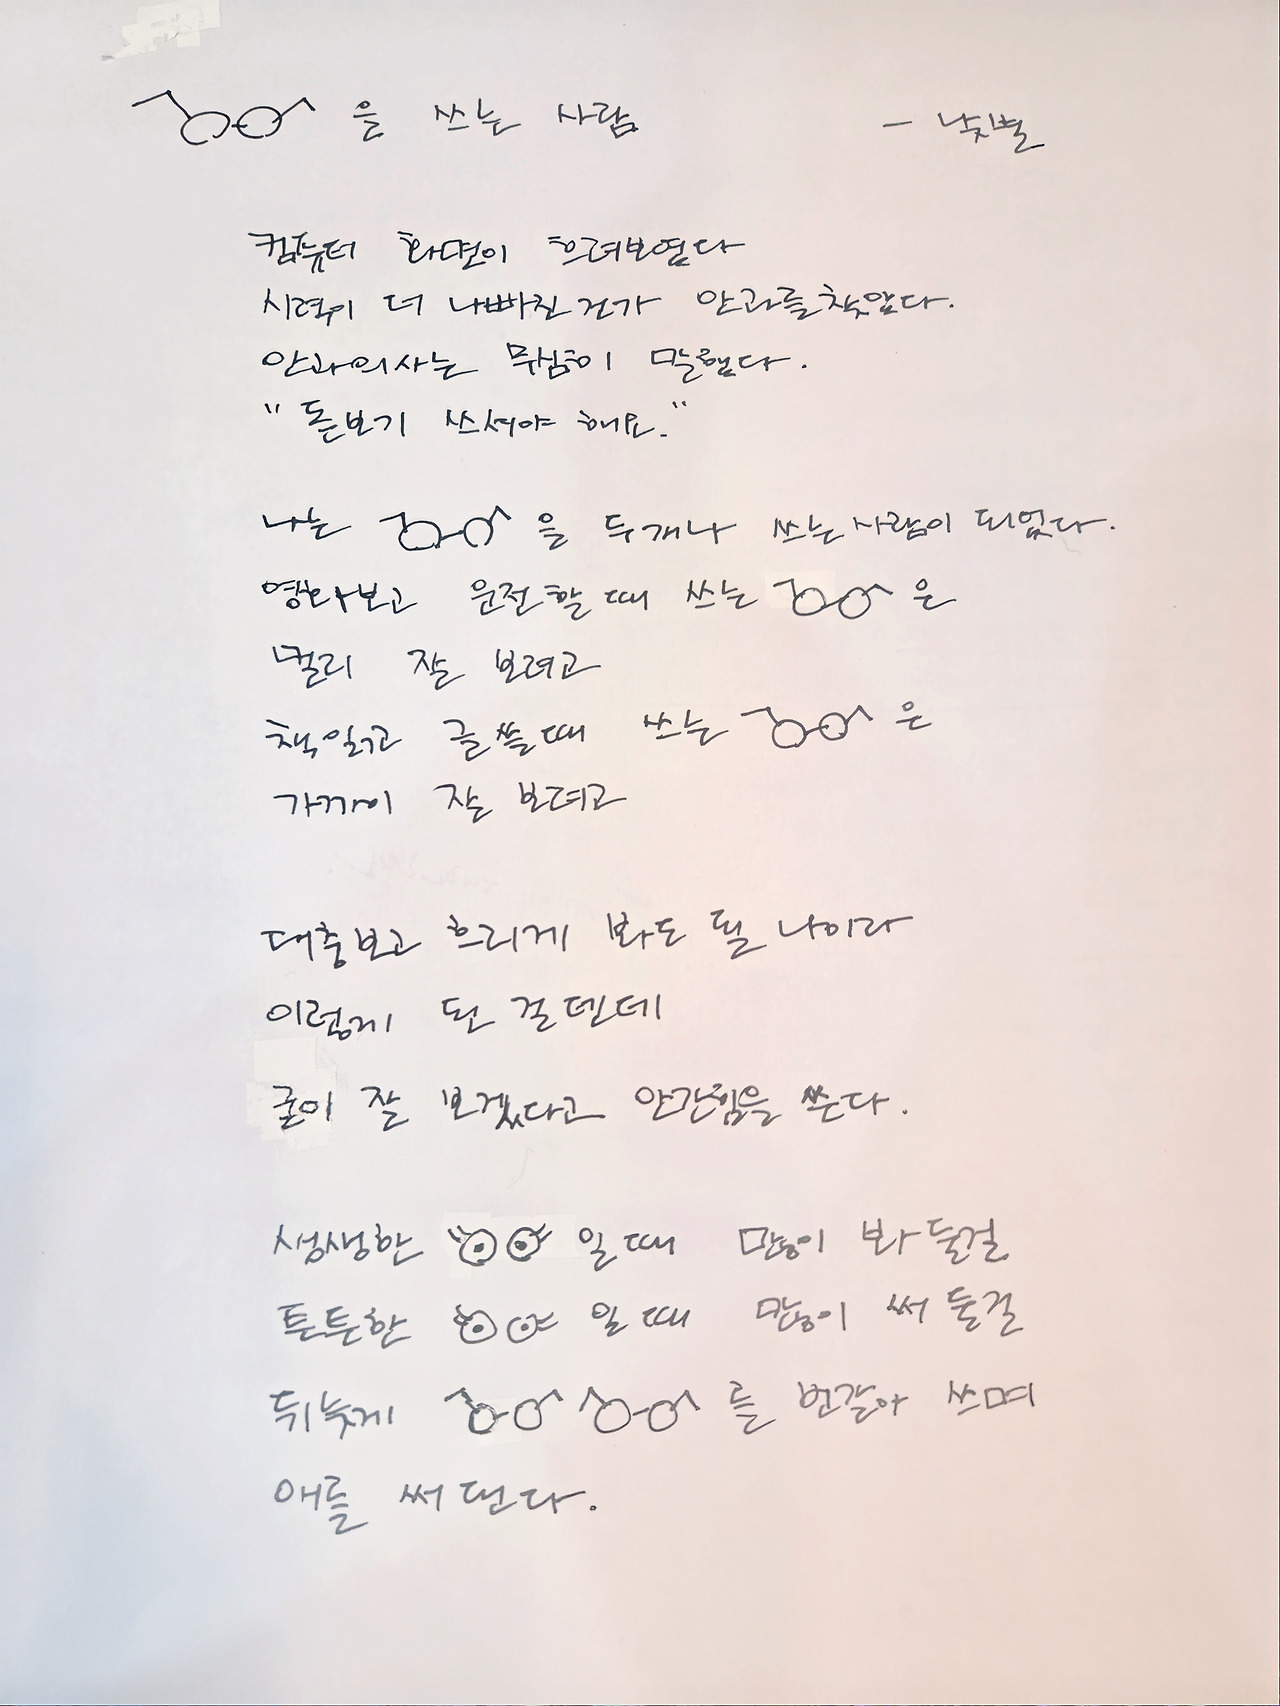 을 쓰는 사람 - 낮별
컴퓨터 화면이 흐려보였다
시력이 더 나빠진건가 안과를 찾았다.
안과의사는 무심히 말했다.
"돋보기 쓰셔야 해요."
나는 을 두개나 쓰는 사람이 되었다.
영화보고 운전할 때 쓰는 은
멀리 잘 보려고
책읽고 글쓸때 쓰는 은
가까이 잘 보려고
대충보고 흐리게 봐도 될 나이라
이렇게 된 걸텐데
굳이 잘 보겠다고 안간힘을 쓴다.
생생한 일 때 많이 봐 둘걸
튼튼한 일 때 많이 써 둘걸
뒤늦게 를 번갈아 쓰며
애를 써 댄다.